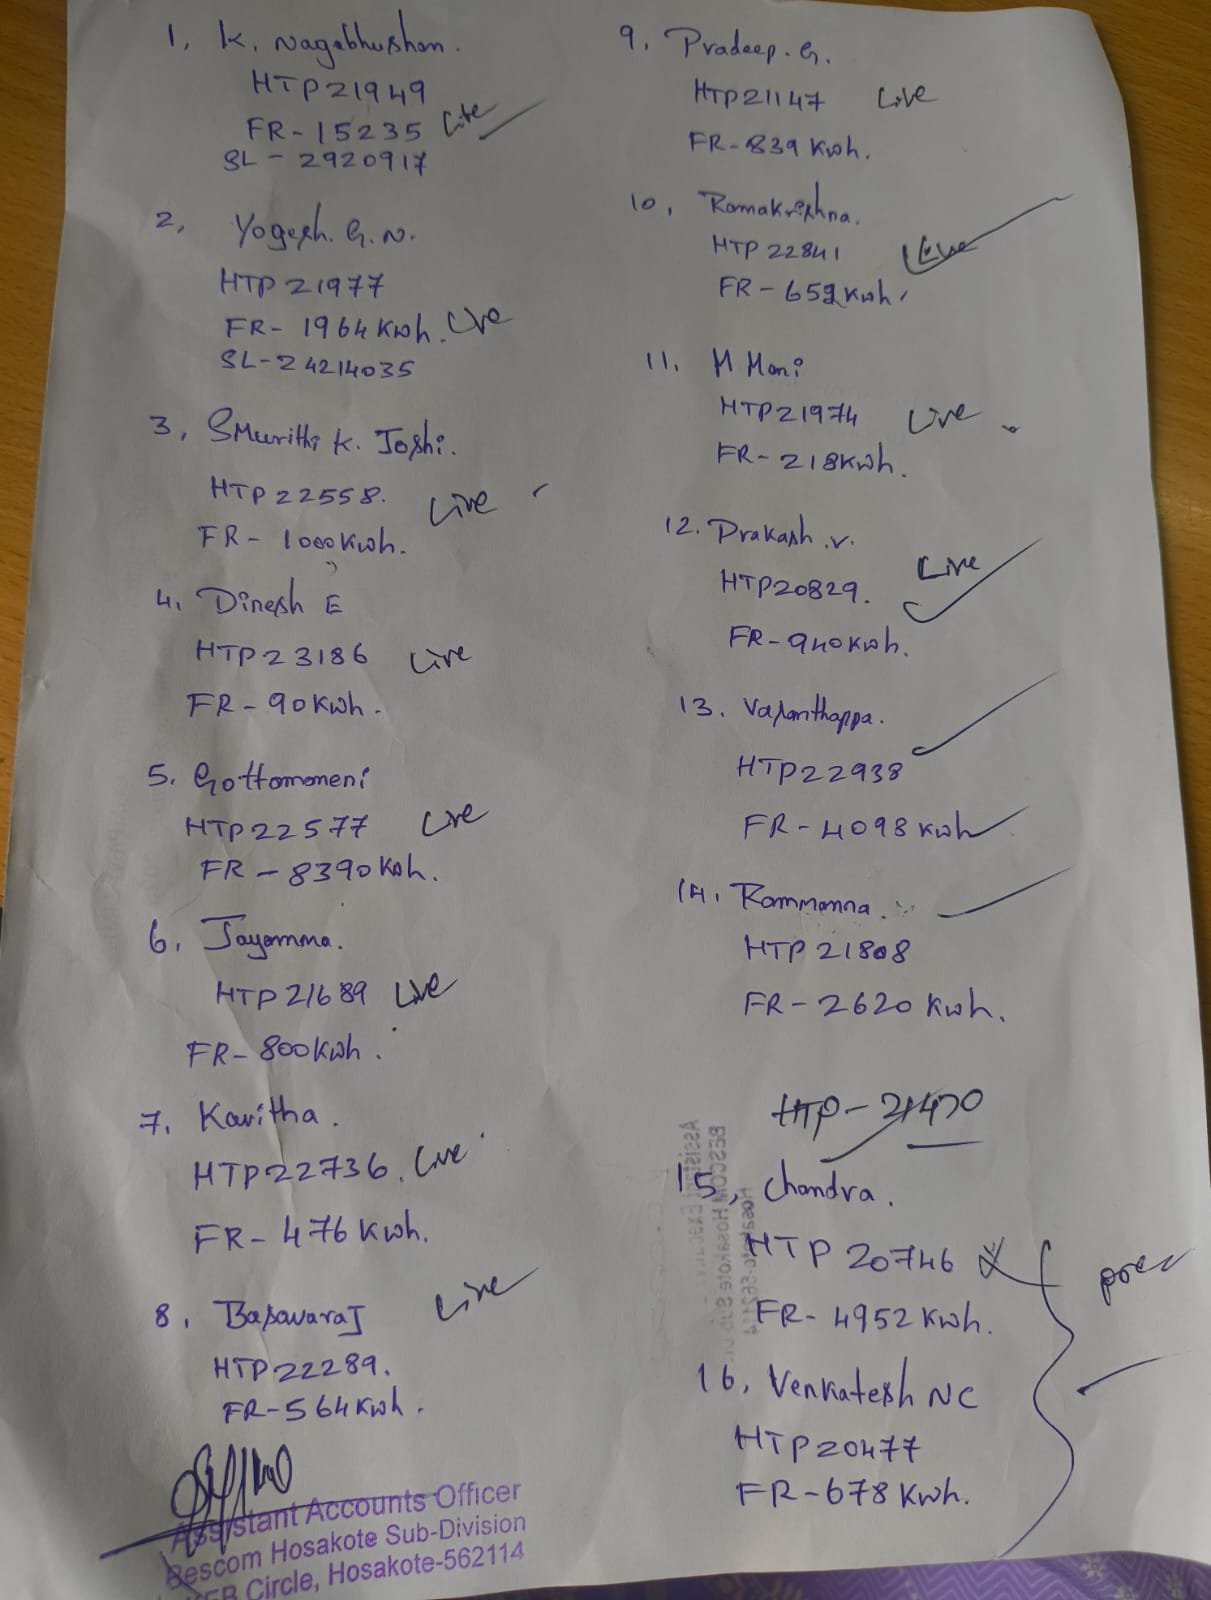 1, K. Nagabhushan.
HTP21949
FR-15235 Live
SL-2920917
2, Yogesh. G. N.
HTP 21977
FR- 1964 Kwh. Live
SL-24214035
3, Smurithi K. Joshi.
HTP 22558. Live
FR- 1000 Kwh.
4, Dinesh E
HTP23186 Live
FR-90 Kwh.
5. Gottomoneni
HTP22577 Live
FR-8390 Kwh.
6, Jayamma.
HTP 21689 Live
FR-800 Kwh.
7, Kavitha.
HTP22736. Live
FR- 476 Kwh.
8, Basavaraj Live
HTP22289.
FR-564 Kwh.
Assistant Accounts Officer
Bescom Hosakote Sub-Division
KEB Circle, Hosakote-562114
9, Pradeep. G.
HTP21147 Live
FR-839 Kwh.
10, Ramakrishna.
HTP 22841 Live
FR-652 Kwh.
11. M Mani
HTP21974 Live
FR-218 Kwh.
12. Prakash .V.
HTP20829. Live
FR-940 Kwh.
13. Vasanthappa.
HTP22938
FR-4098 Kwh
14, Rammanna.
HTP 21808
FR-2620 Kwh.
HTP-21470
15, Chandra.
HTP 20746
FR- 4952 Kwh.
16, Venkatesh NC
HTP20477
FR-678 Kwh.